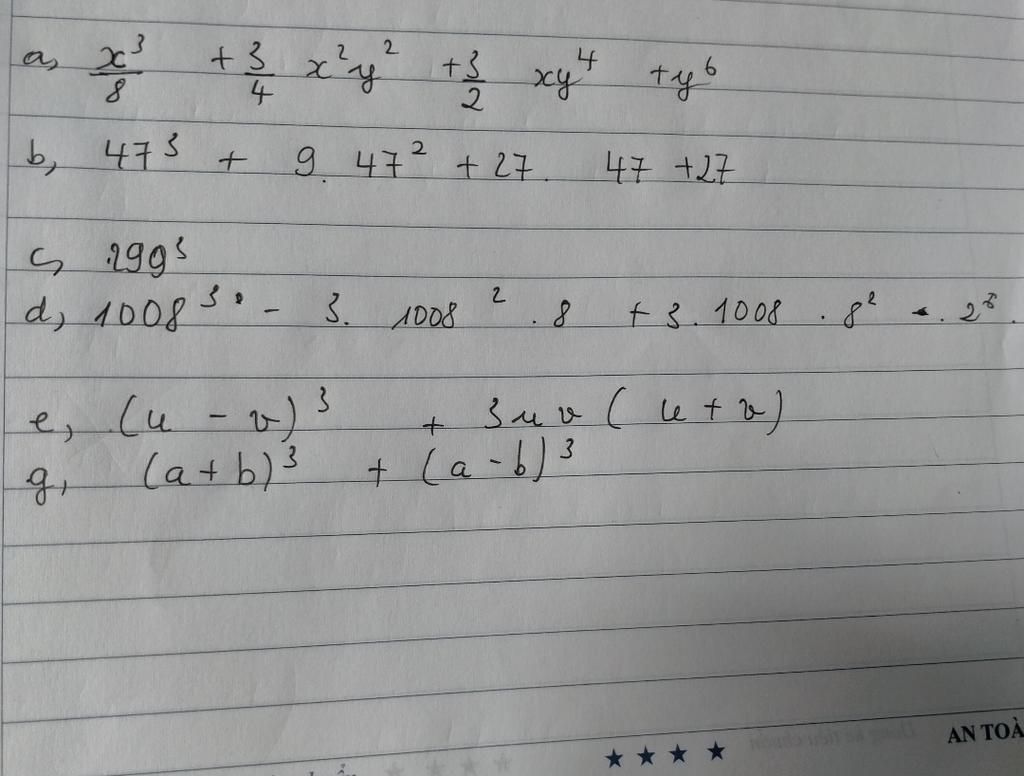 a, x³/8 + 3/4 x²y² + 3/2 xy⁴ + y⁶
b, 47³ + 9. 47² + 27. 47 + 27
c, 299³
d, 1008³ - 3. 1008² . 8 + 3. 1008 . 8² - . 2⁸.
e, (u - v)³ + 3uv (u + v)
g, (a + b)³ + (a - b)³
AN TOÀ